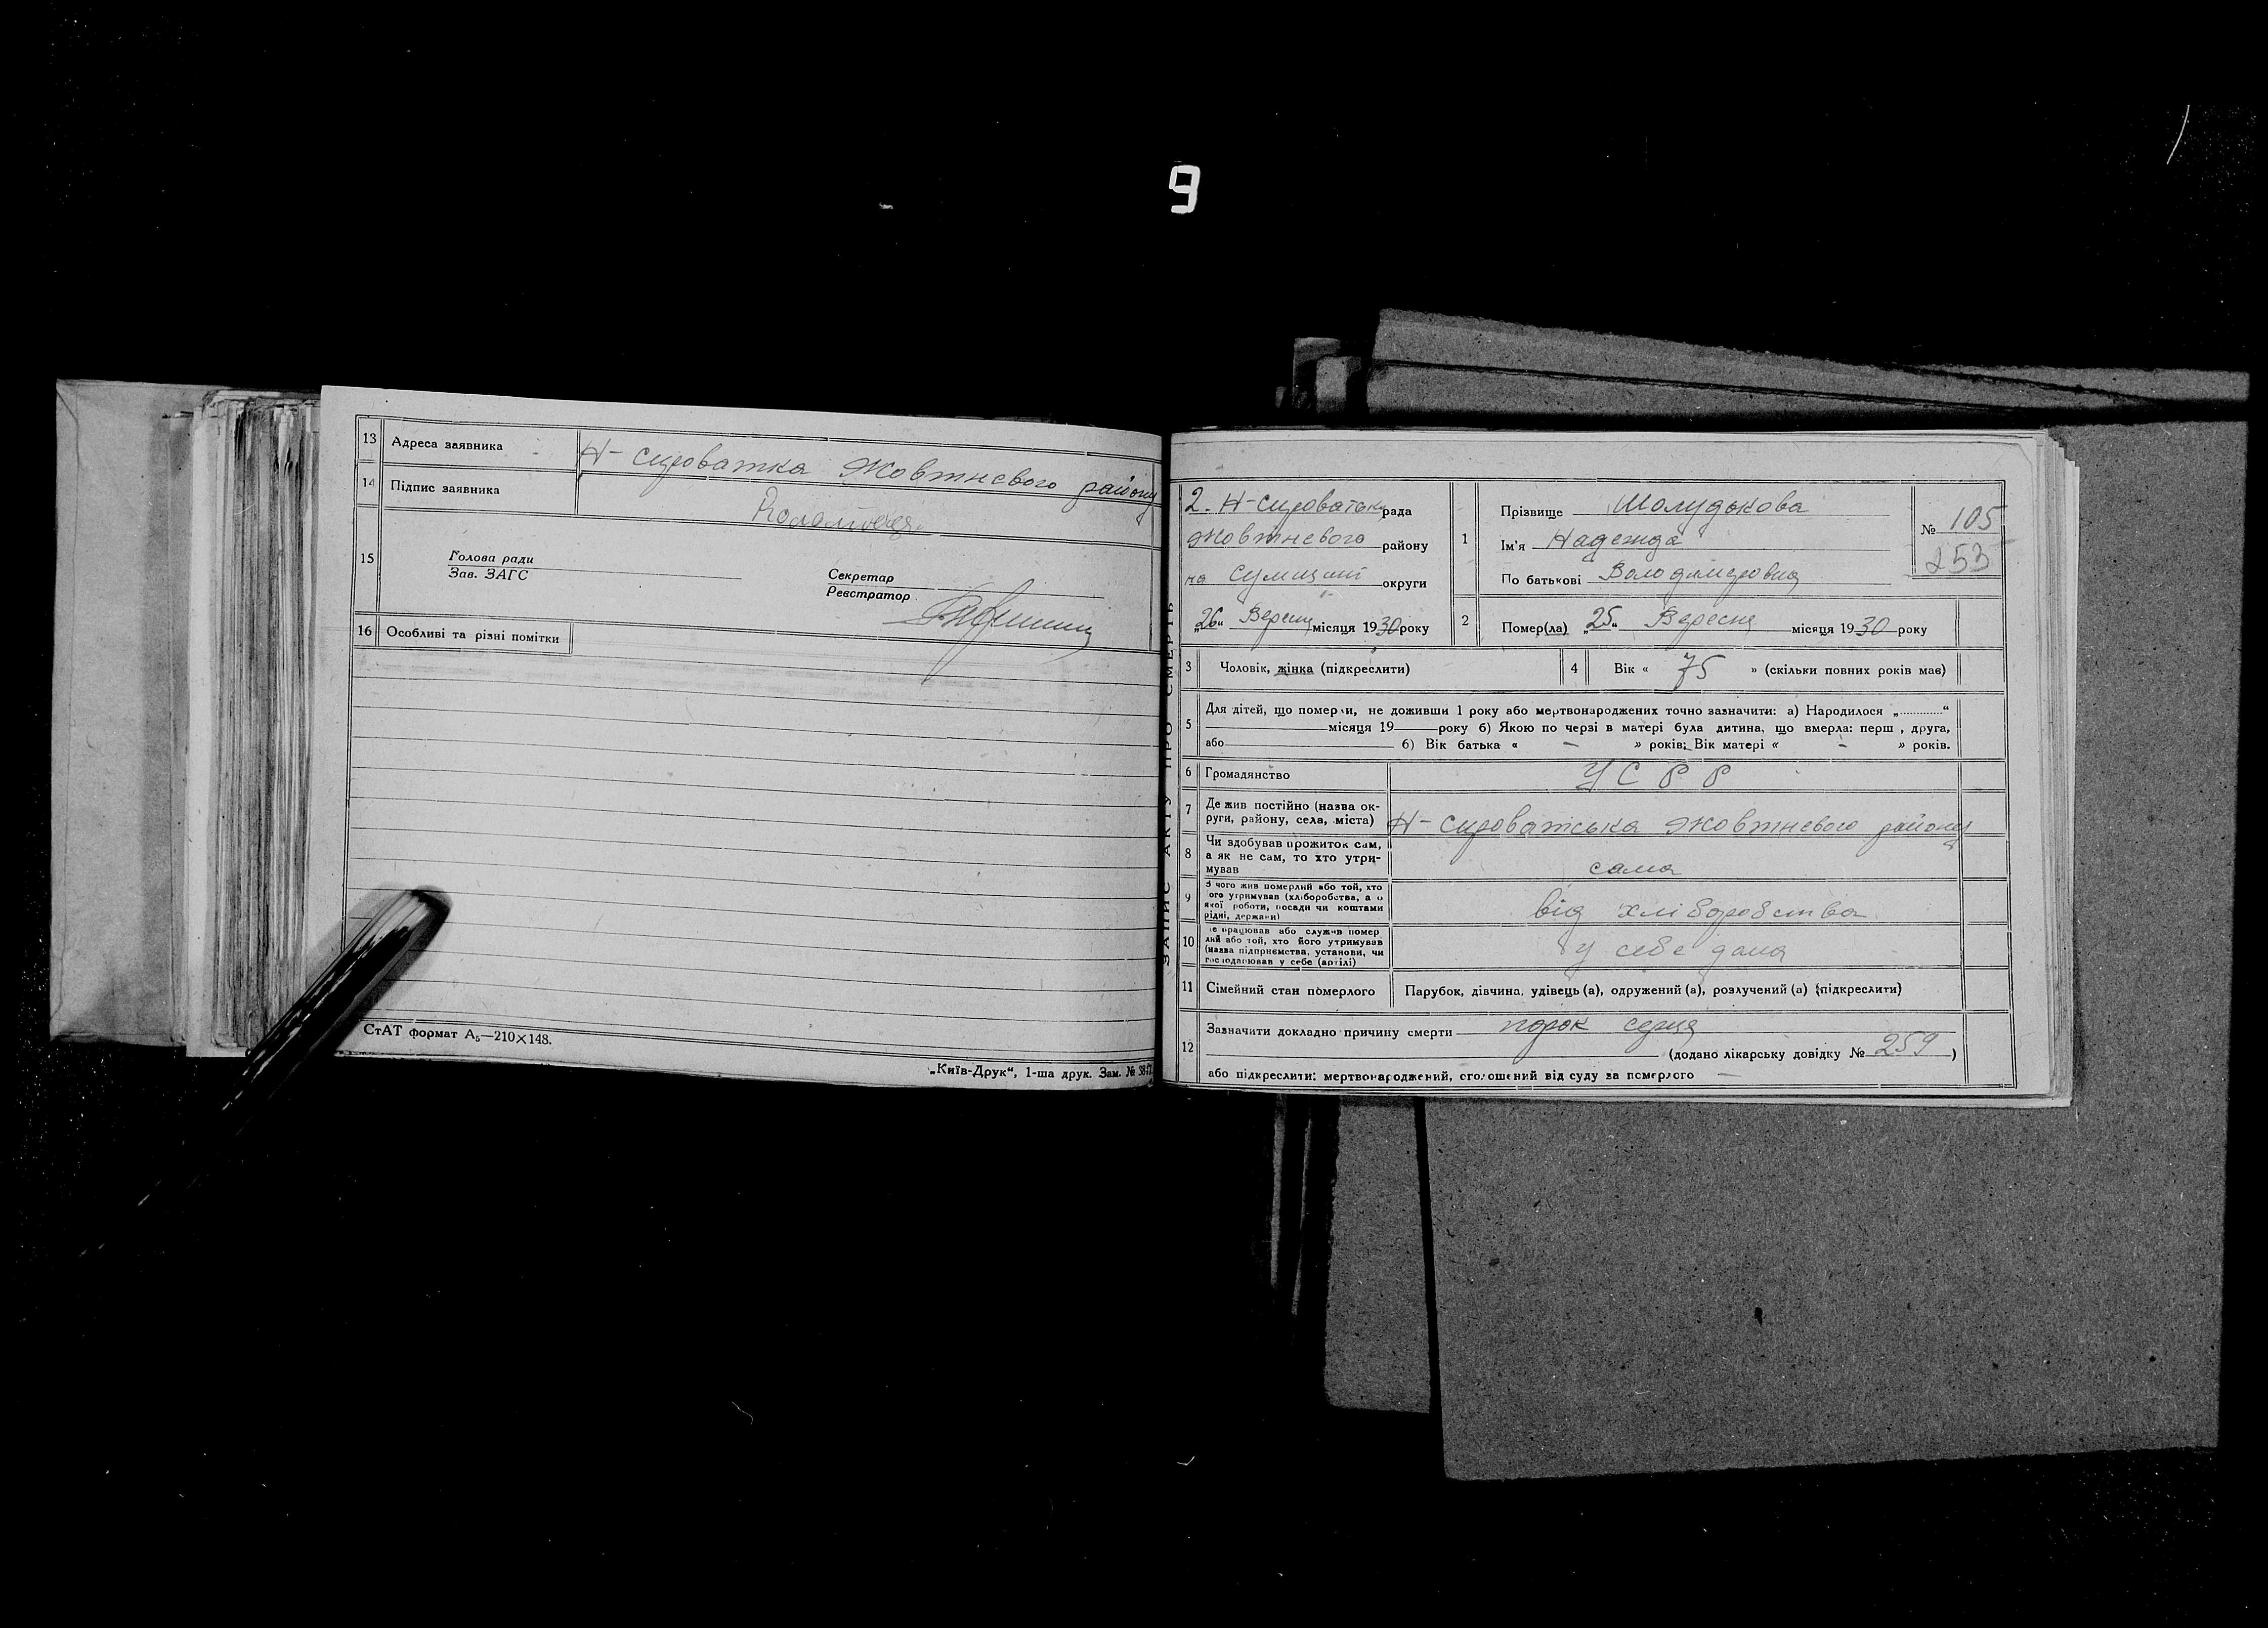 9
13 Адреса заявника Н-сироватка Жовтневого району
14 Підпис заявника
15 Голова ради
Зав. ЗАГС
Секретар
Реєстратор
16 Особливі та різні помітки
СтАТ формат А₅—210×148.
„Київ-Друк“, 1-ша друк. Зам. №
ЗАПИС АКТУ ПРО СМЕРТЬ
2. Н-сироватська рада
Жовтневого району
на Сумщині округи
„26“ Вересня місяця 1930 року
1 Прізвище Шолудькова
Ім'я Надежда
По батькові Володимировна
№ 105
253
2 Помер(ла) „25“ Вересня місяця 1930 року
3 Чоловік, жінка (підкреслити)
4 Вік « 75 » (скільки повних років має)
5 Для дітей, що померли, не доживши 1 року або мертвонароджених точно зазначити: а) Народилося „............“
місяця 19 року б) Якою по черзі в матері була дитина, що вмерла: перш , друга,
або 6) Вік батька « – » років; Вік матері « – » років.
6 Громадянство УСРР
7 Де жив постійно (назва ок-
руги, району, села, міста) Н-сироватська Жовтневого району
8 Чи здобував прожиток сам,
а як не сам, то хто утри-
мував сама
9 З чого жив померлий або той, хто
ого утримував (хліборобства, а о
якої роботи, посади чи коштами
рідні, держави) від хліборобства
10 де працював або служив помер
лий або той, хто його утримував
(назва підприємства, установи, чи
господарював у себе (артілі) у себе дома
11 Сімейний стан померлого Парубок, дівчина, удівець (а), одружений (а), розлучений (а) (підкреслити)
12 Зазначити докладно причину смерти порок серця
(додано лікарську довідку № 259 )
або підкреслити: мертвонароджений, оголошений від суду за померлого